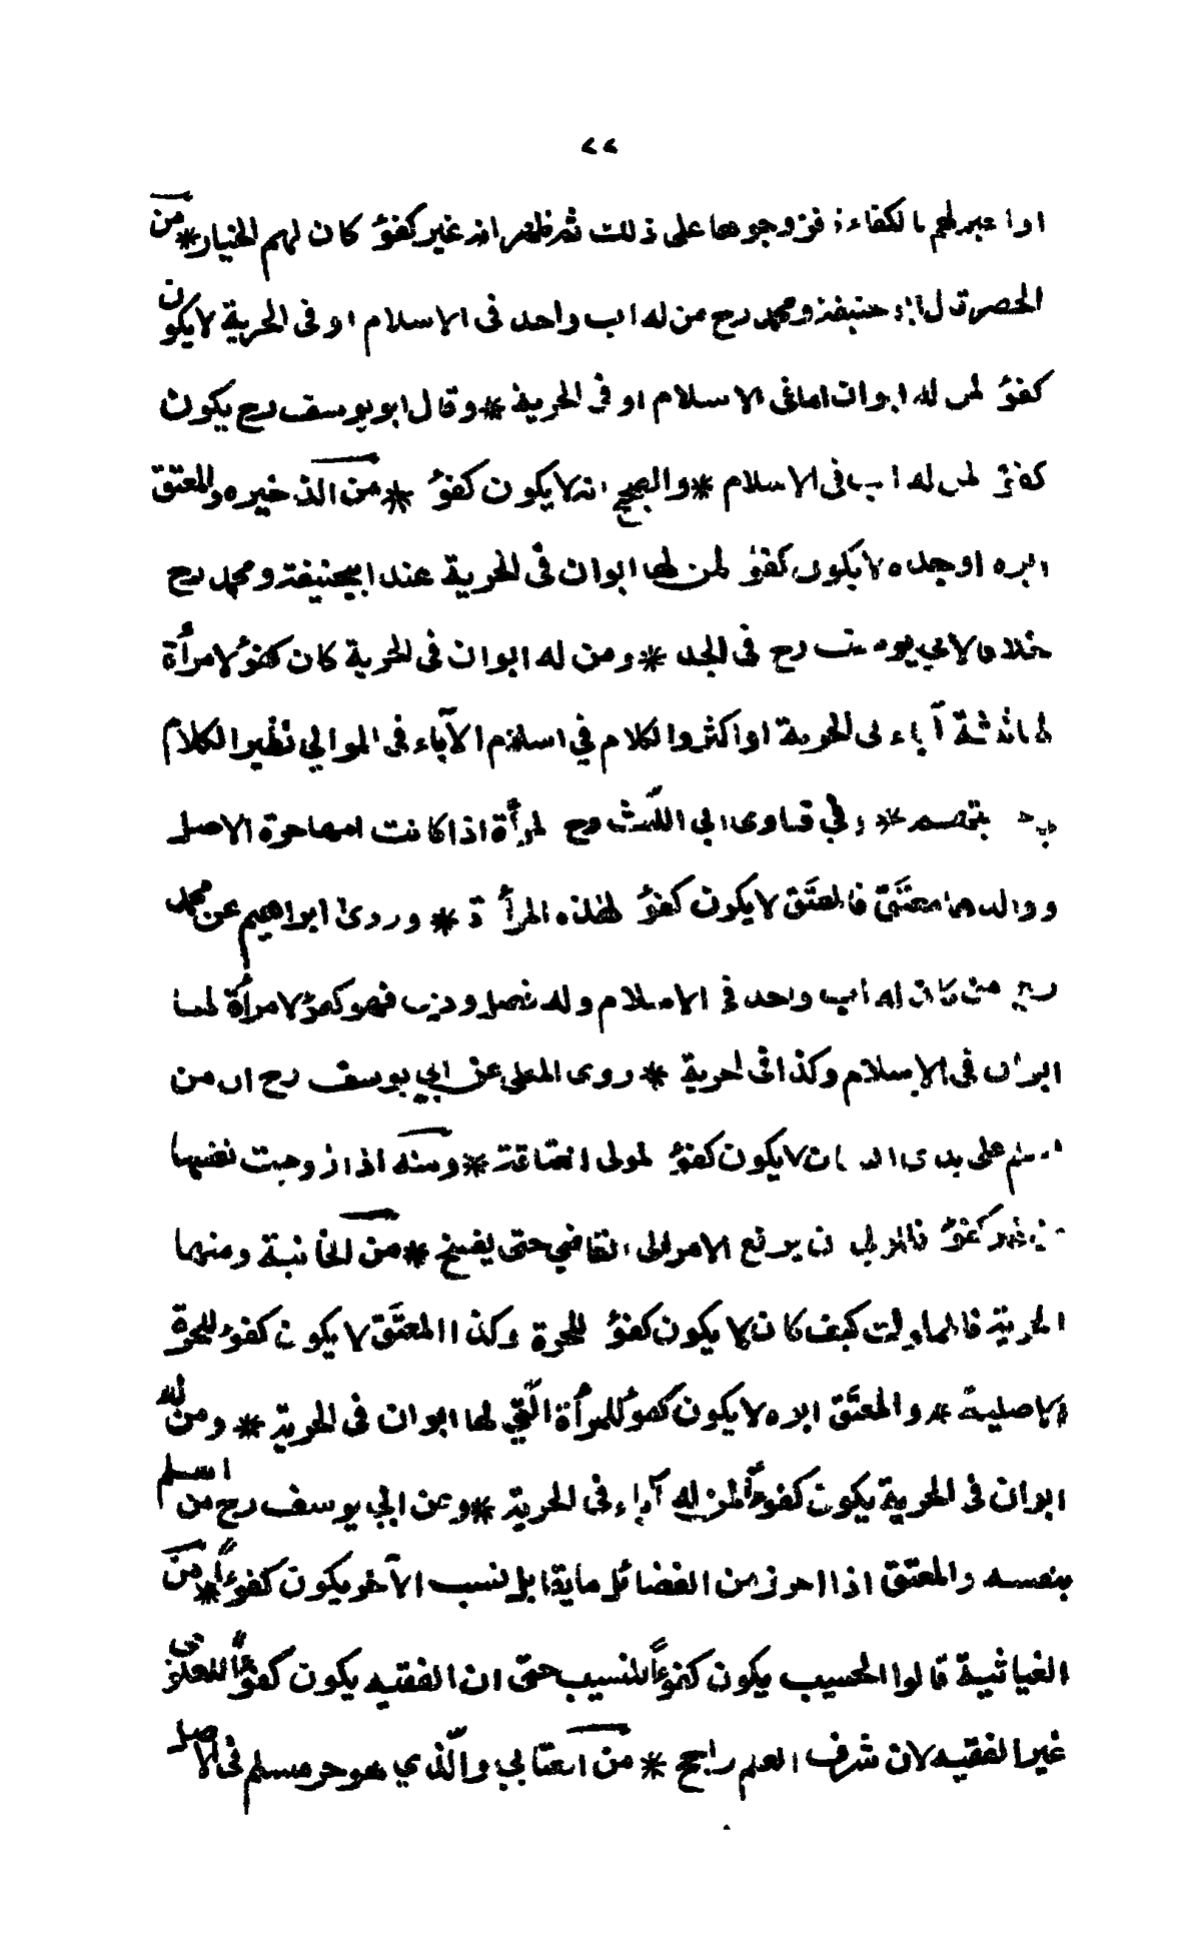 ٢٢
او اخبرهم بالكفاءة فزوجوها على ذلك ثم ظهر انه غير كفؤ كان لهم الخيار * من
الحصر قال ابو حنيفة ومحمد رح من له اب واحد فى الاسلام او فى الحرية لا يكون
كفؤ لمن له ابوان اما فى الاسلام او فى الحرية * وقال ابو يوسف رح يكون
كفؤ لمن له اب فى الاسلام * والصحيح انه لا يكون كفؤ * من الذخيره والمعتق
ابوه او جده لا يكون كفؤ لمن لها ابوان فى الحرية عند ابيحنيفة ومحمد رح
خلافا لابي يوسف رح فى الجد * ومن له ابوان فى الحرية كان كفؤ لامرأة
لها ثلثة آباء فى الحرية او اكثر والكلام في اسلام الآباء فى الموالي نظير الكلام
* وفي فتاوى ابي الليث رح لمرأة اذا كانت امها حرة الاصل
ووالدها معتَق فالمعتَق لا يكون كفؤ لهذه المرأة * وروى ابراهيم عن محمد
رح من كان له اب واحد فى الاسلام وله فضل ودين فهو كفؤ لامرأة لها
ابوان فى الاسلام وكذا فى الحرية * روى المعلى عن ابي يوسف رح ان من
اسلم على يدى انسان لا يكون كفؤ لمولى العتاقة * ومنه اذا زوجت نفسها
من غير كفؤ فللولي ان يرفع الامر الى القاضي حتى يفسخ * من الخانية ومنها
الحرية فالمملوك كيف كان لا يكون كفؤ للحرة وكذا المعتَق لا يكون كفؤ للحرة
الاصلية * والمعتَق ابوه لا يكون كفؤ للمرأة الّتي لها ابوان فى الحرية * ومن له
ابوان فى الحرية يكون كفوءًا لمن له آباء فى الحرية * وعن ابي يوسف رح من اسلم
بنفسه والمعتق اذا احرز من الفضائل ما يقابل نسب الآخر يكون كفوءًا * من
الغياثية قالوا الحسيب يكون كفوءًا للنسيب حتى ان الفقيه يكون كفوءًا للعلوى
غير الفقيه لان شرف العلم راجح * من العتابي والّذي هو حر مسلم فى الاصل